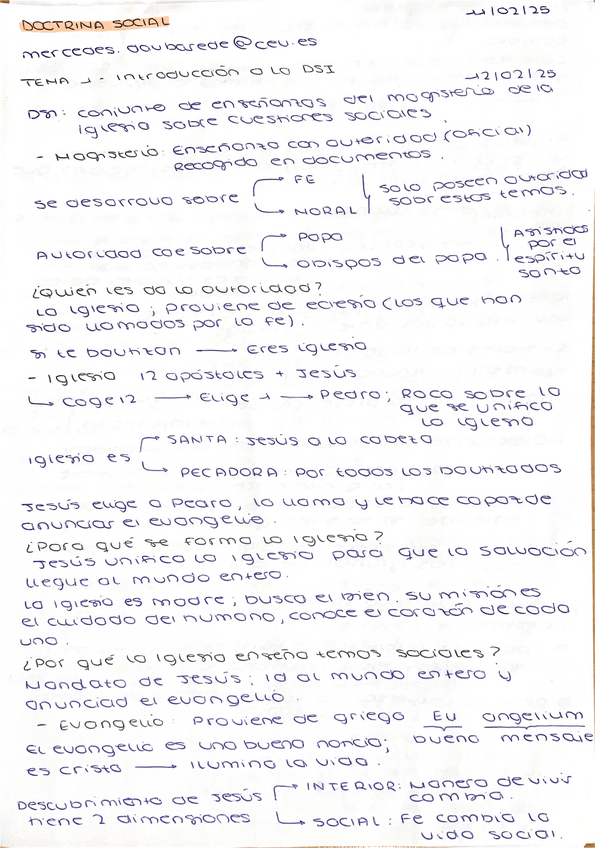 11/02/25
DOCTRINA SOCIAL
mercedes.doubarede@ceu.es
TEMA 1 - Introducción a la DSI
12/02/25
DSI: conjunto de enseñanzas del magisterio de la
iglesia sobre cuestiones sociales.
- Magisterio: Enseñanza con autoridad (oficial)
Recogido en documentos.
se desarrolla sobre
FE
MORAL
solo poseen autoridad
sobre estos temas.
Autoridad cae sobre
PAPA
Obispos del papa.
Asistidos
por el
espíritu
santo
¿Quién les da la autoridad?
La iglesia; proviene de eclesia (los que han
sido llamados por la fe).
si te bautizan → Eres iglesia
- Iglesia 12 apóstoles + Jesús
↳ Coge 12 → Elige 1 → Pedro; Roca sobre la
que se unifica
la iglesia
iglesia es
SANTA: Jesús a la cabeza
PECADORA: por todos los bautizados
Jesús elige a Pedro, lo llama y le hace capaz de
anunciar el evangelio.
¿Para qué se forma la iglesia?
Jesús unifica la iglesia para que la salvación
llegue al mundo entero.
la iglesia es madre; busca el bien. su misión es
el cuidado del humano, conoce el corazón de cada
uno.
¿Por qué la iglesia enseña temas sociales?
Mandato de Jesús; id al mundo entero y
anunciad el evangelio.
- Evangelio: Proviene de griego Eu angelium
bueno mensaje
El evangelio es una buena noticia;
es cristo → ilumina la vida.
Descubrimiento de Jesús
tiene 2 dimensiones
INTERIOR: Manera de vivir
cambia.
SOCIAL: Fe cambia la
vida social.